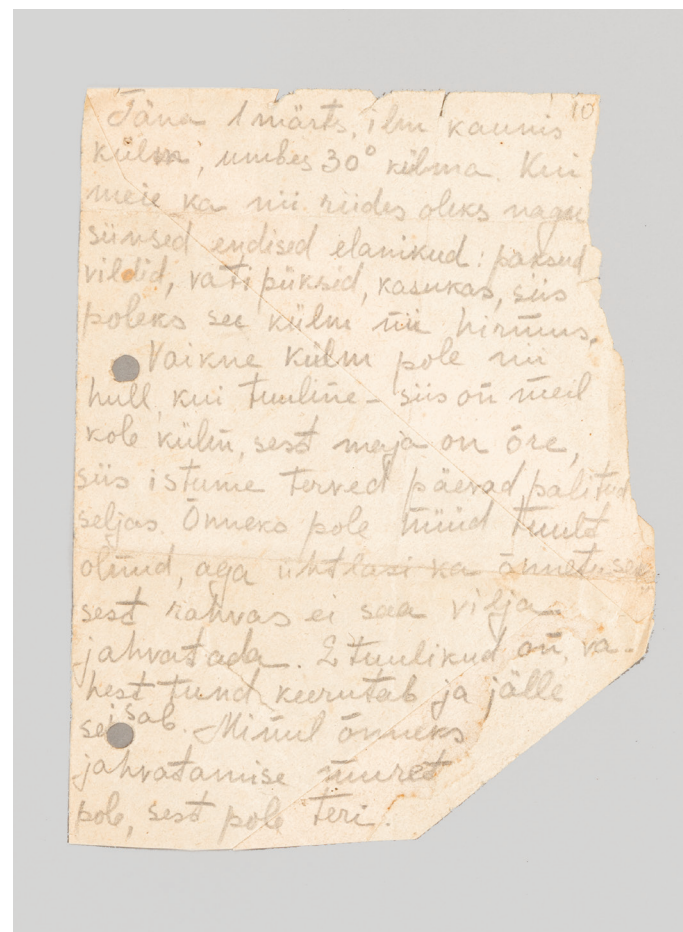 10
Täna 1 märts, ilm kaunis
külm, umbes 30° külma. Kui
meie ka nii riides oleks nagu
siinsed endised elanikud: paksud
vildid, vati püksid, kasukas, siis
poleks see külm nii hirmus.
Vaikne külm pole nii
hull, kui tuuline – siis on meil
kole külm, sest maja on õre,
siis istume terved päevad palitud
seljas. Õnneks pole nüüd tuult
olnud, aga ühtlasi ka õnnetuseks
sest rahvas ei saa vilja
jahvatada. 2 tuulikud on, va-
hest tund keerutab ja jälle
seisab. Minul õnneks
jahvatamise muret
pole, sest pole teri.